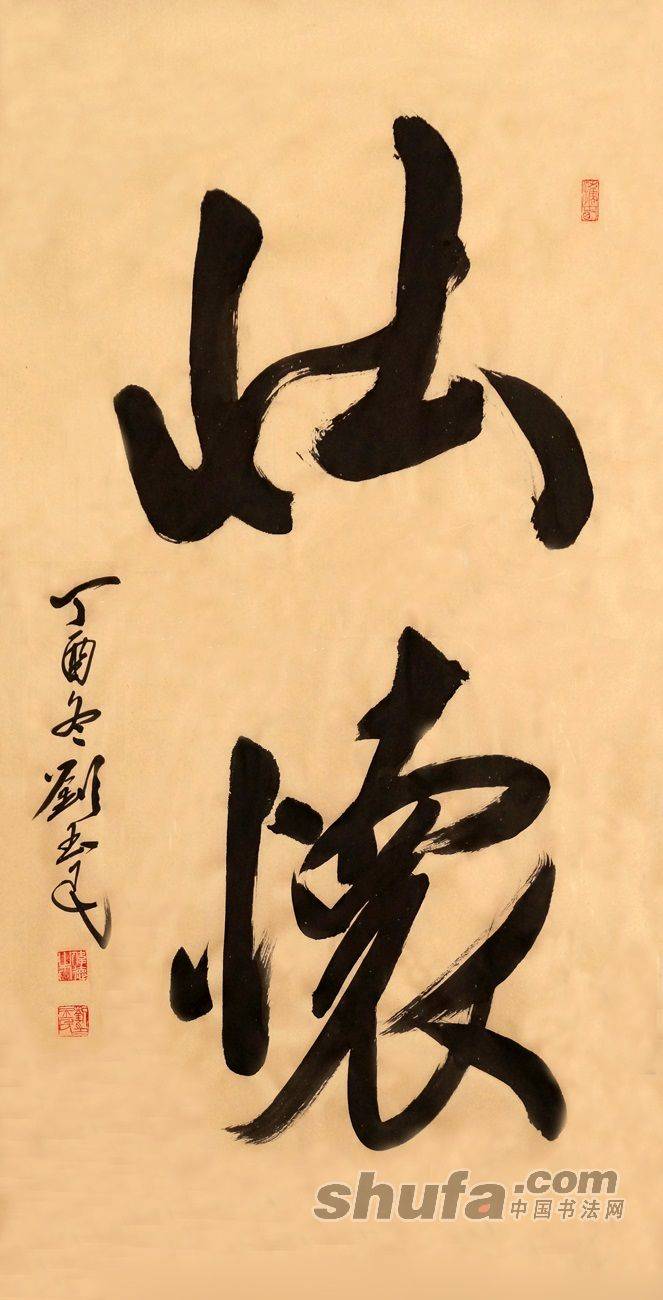 壮懷
丁酉冬劉玉民
shufa.com
中国书法网